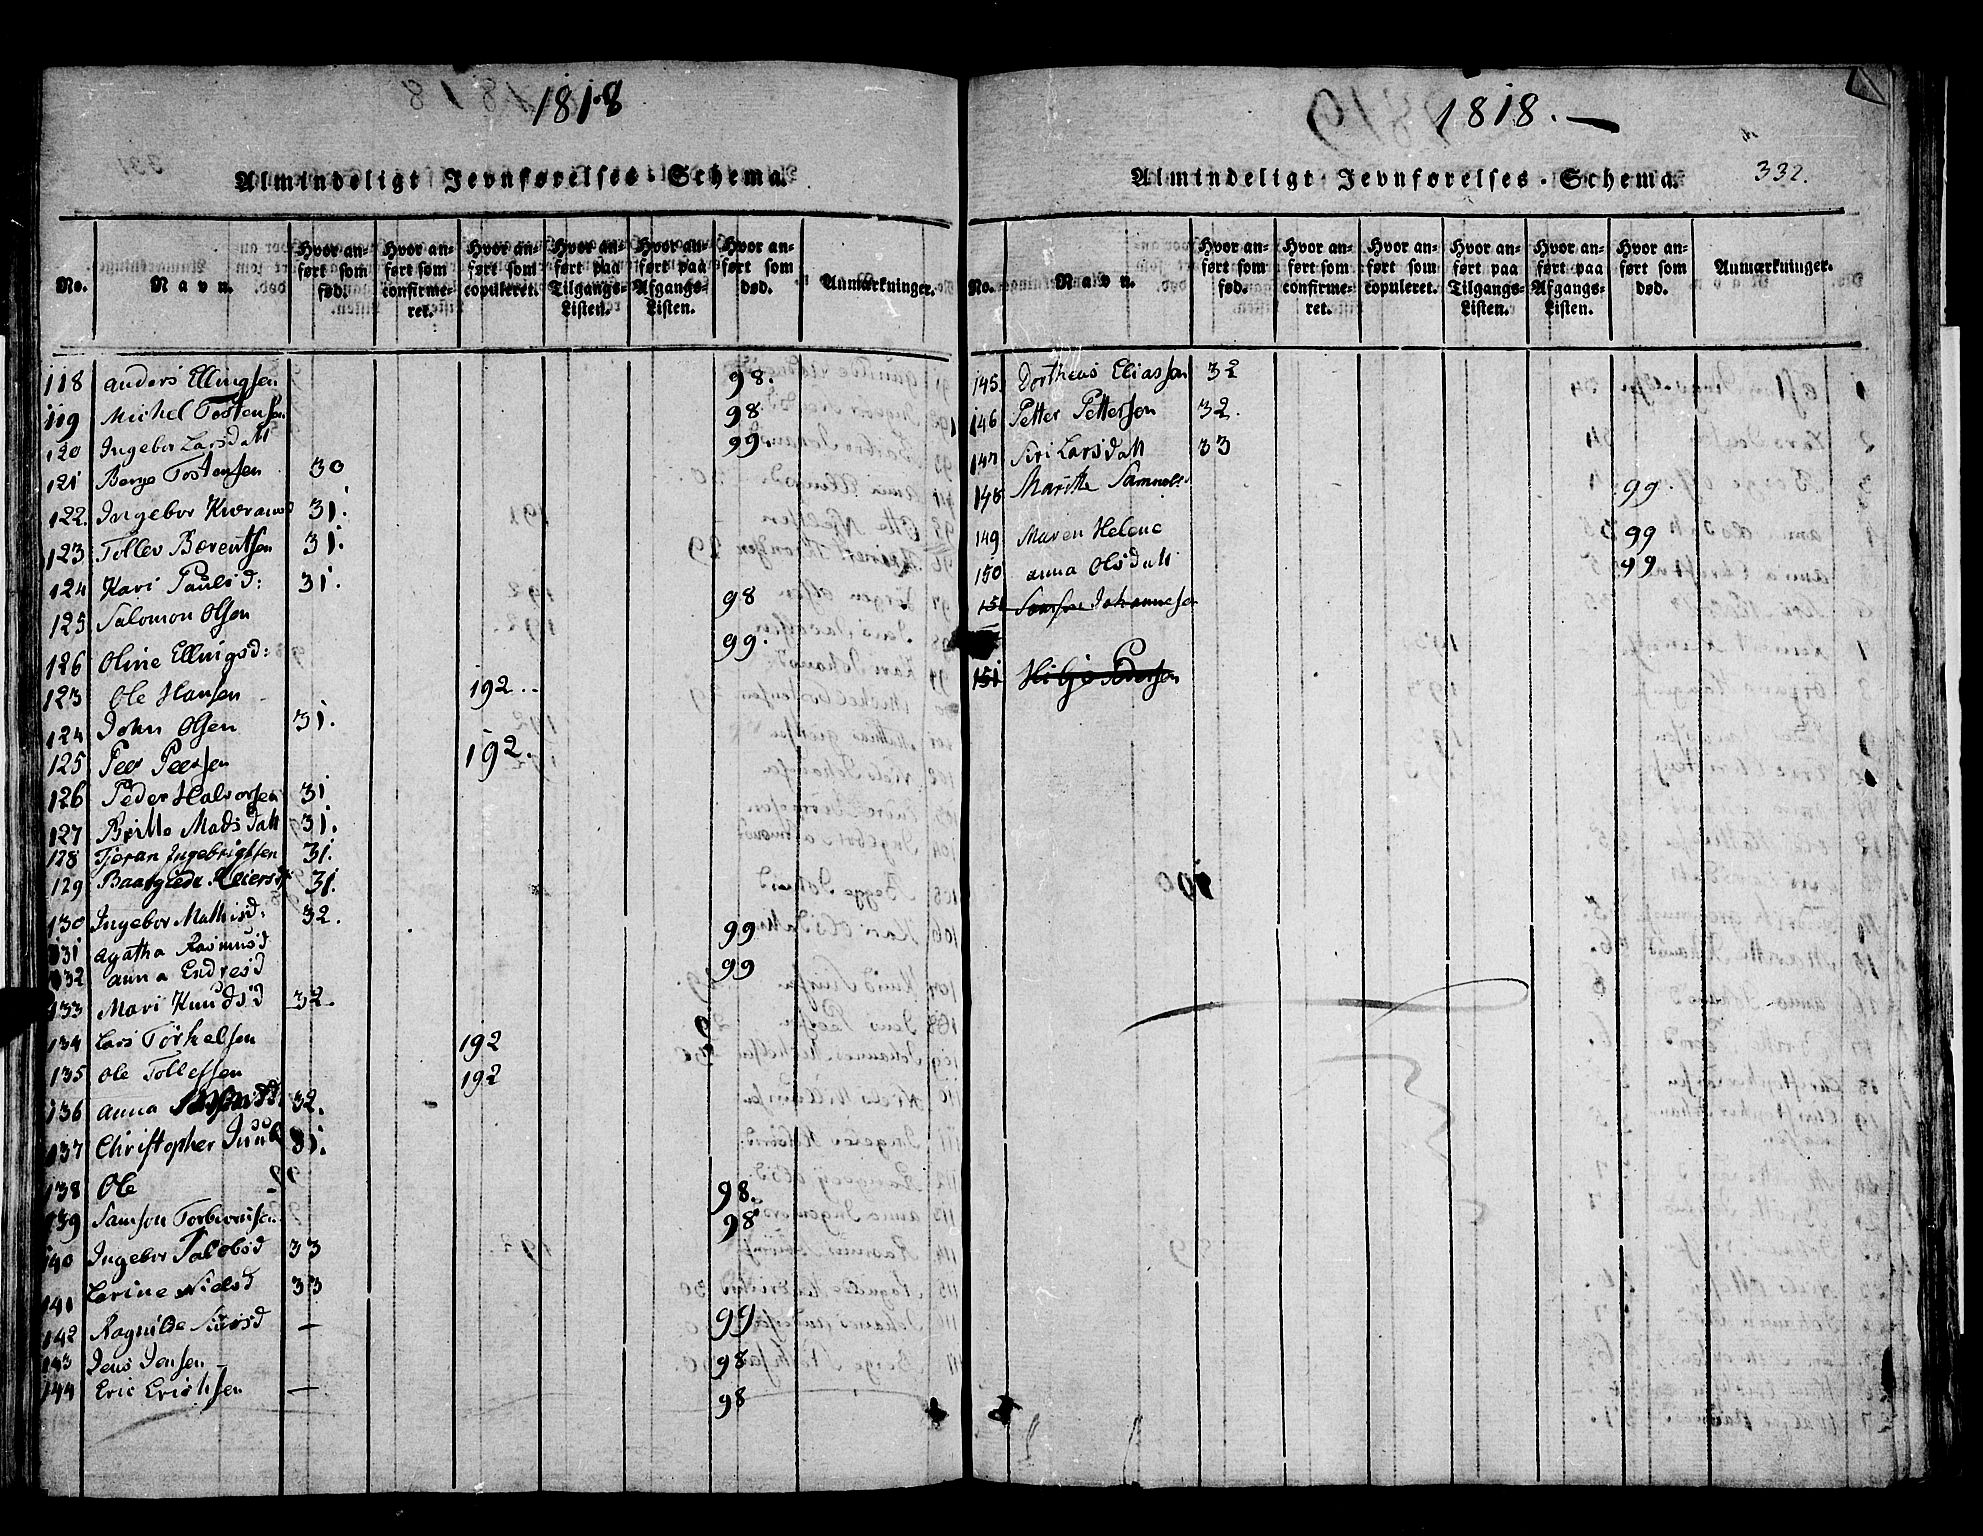 1818
Almindeligt Jevnførelses-Schema.
No.
Navn.
Hvor anført som fød.
Hvor anført som confirmeret.
Hvor anført som copuleret.
Hvor anført paa Tilgangs-Listen.
Hvor anført paa Afgangs-Listen.
Hvor anført som død.
Anmærkninger.
118 Anders Ellingsen 98.
119 Michel Tostensen 98
120 Ingebor Larsdatt 99
121 Berge Tostensen 30
122. Ingebor 31.
123 Tollev Berentsen 31.
124 Kari Paulsd: 31.
125 Salomon Olsen 98
126 Oline Ellingsd: 99.
123 Ole Hansen 192
124 John Olsen 31.
125 Peer Peersen 192.
126 Peder Halvorsen 31
127 Britte Madsdatt 31.
128 Tjeran Ingebrigtsen 31.
129 31.
130 Ingebor Mathisd: 32.
131 Agatha Rasmusd 99
132 Anna Endresd 99
133 Mari Knudsd 32.
134 Lars Torkelsen 192
135 Ole Tollefsen 192
136 Anna 32.
137 Christopher Juul 31.
138 Ole 98.
139 Samson Torbiornsen 98
140 Ingebor Jacobsd 33
141 Larine Nielsd 33
142 Ragnilde Siursd — 99
143 Jens Jensen — 98
144 Eric Erichsen — 98
1818. —
332.
Almindeligt Jevnførelses-Schema.
No.
Navn.
Hvor anført som fød.
Hvor anført som confirmeret.
Hvor anført som copuleret.
Hvor anført paa Tilgangs-Listen.
Hvor anført paa Afgangs-Listen.
Hvor anført som død.
Anmærkninger.
145. Dortheus Eliassen 32
146 Petter Pettersen 32.
147 Siri Larsdatt 33
148 Maritte Samuels 99.
149 Maren Helene 99
150 Anna Olsdatt 99
151 Johannesen
151 Pedersen